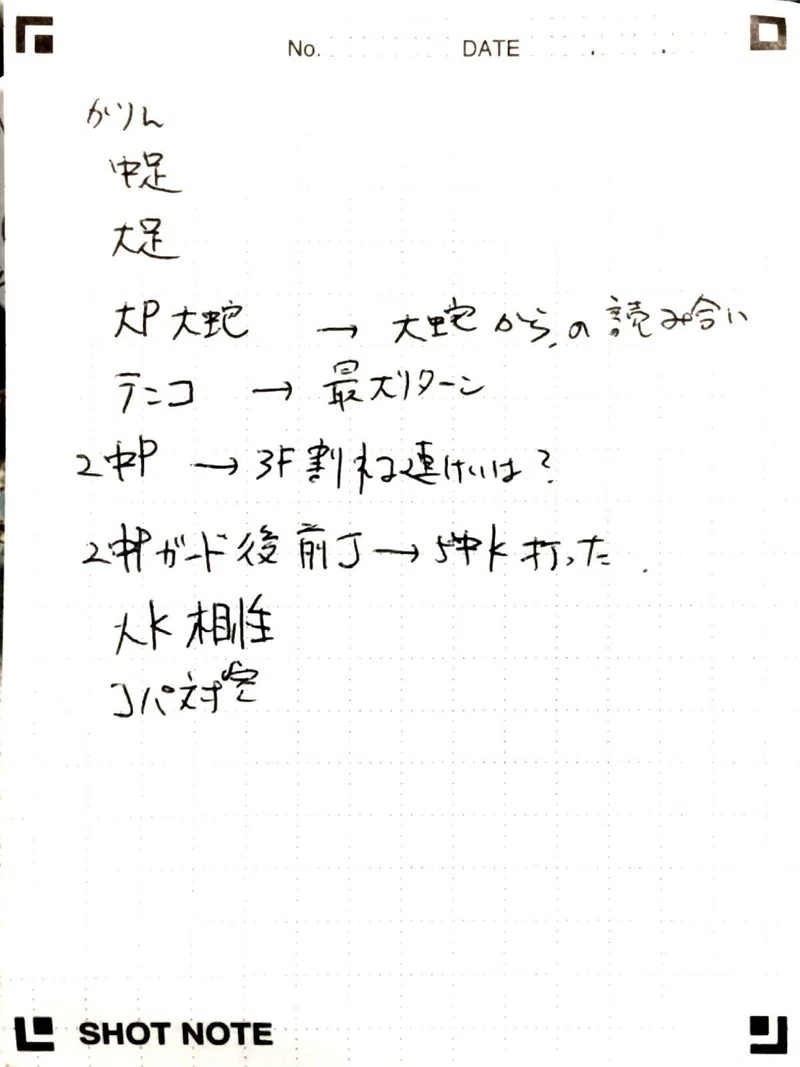 No. DATE . .
かりん
中足
大足
大P 大蛇 → 大蛇からの読み合い
テンコ → 最大リターン
2中P → 3F割れ連けいは?
2中Pガード後 前J → 5中K 打った.
大K 相性
コパ対空
SHOT NOTE